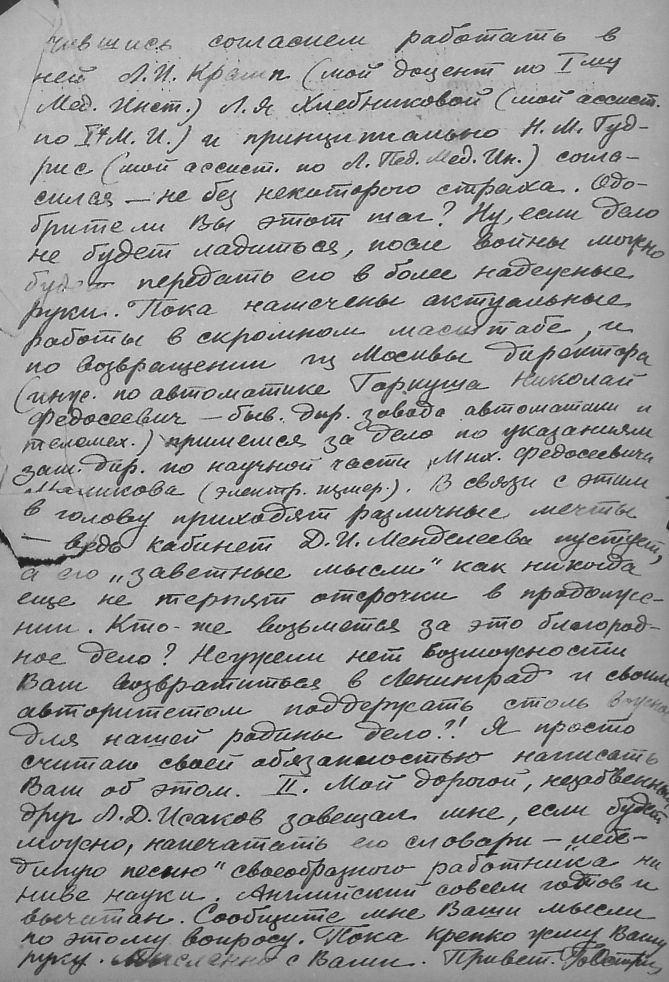 чившись согласием работать в
ней Л.И. Крамп (мой доцент по I му
Мед. Инст.) Л.Я Хлебниковой (мой ассист.
по I М. И.) и принципиально Н.М. Гуд-
рис (мой ассист. по Л. Пед. Мед. Ин.) согла-
сился — не без некоторого страха. Одо-
брители Вы этот шаг? Ну, если дело
не будет ладиться, после войны можно
будет передать его в более надежные
руки. Пока намечены актуальные
работы в скромном масштабе, и
по возвращении из Москвы директора
(инж. по автоматике Гаркуша Николай
Федосеевич — быв. дир. завода автоматики и
телемех.) примемся за дело по указаниям
зам. дир. по научной части Мих. Федосеевича
Маликова (электр. измер.). В связи с этим
в голову приходят различные мечты
— ведь кабинет Д.И. Менделеева пустует,
а его „заветные мысли" как никогда
еще не терпят отсрочки в продолже-
нии. Кто-же возьмется за это благород-
ное дело? Неужели нет возможности
Вам возвратиться в Ленинград и своим
авторитетом поддержать столь важное
для нашей родины дело?! Я просто
считаю своей обязанностью написать
Вам об этом. II. Мой дорогой, незабвенный
друг Л.Д. Исаков завещал мне, если будет
можно, напечатать его словари — „лебе-
диную песню" своеобразного работника на
ниве науки. Английский совсем готов и
вычитан. Сообщите мне Ваши мысли
по этому вопросу. Пока крепко жму Вашу
руку. Мысленно с Вами. Привет.